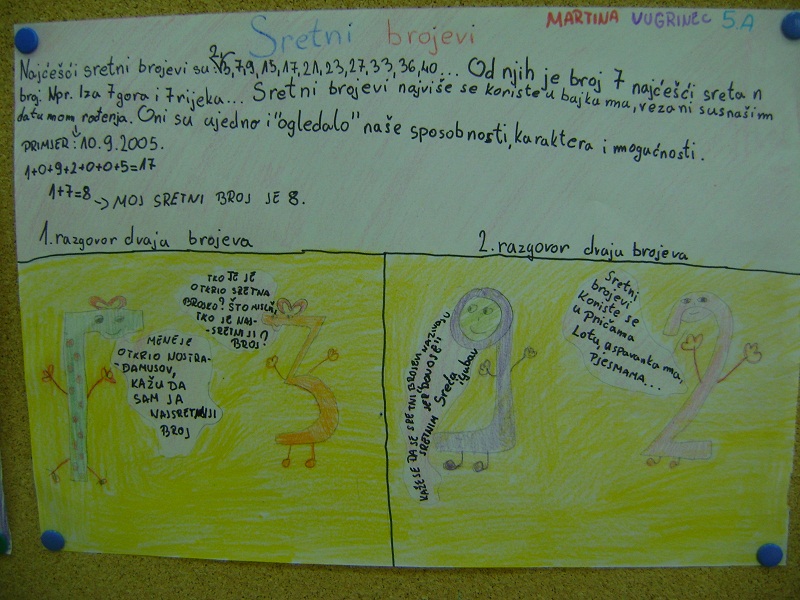 MARTINA VUGRINEC 5.A
Sretni brojevi
Najčešći sretni brojevi su: 2, 3, 7, 9, 15, 17, 21, 23, 27, 33, 36, 40... Od njih je broj 7 najčešći sreta n
broj. Npr. Iza 7 gora i 7 rijeka... Sretni brojevi najviše se koriste u bajka ma, vezani su s našim
datumom rođenja. Oni su ujedno i "ogledalo" naše sposobnosti, karaktera i mogućnosti.
PRIMJER: 10.9.2005.
1+0+9+2+0+0+5=17
1+7=8 → MOJ SRETNI BROJ JE 8.
1. razgovor dvaja brojeva
2. razgovor dvaju brojeva
TKO JE JE
OTKRIO SRETNA
BROJEO? ŠTO MISLIŠ,
TKO JE NAJ-
-SRETNIJI?
BROJ
MENE JE
OTKRIO NOSTRA-
-DAMUSOV,
KAŽU DA
SAM JA
NAJSRETNIJI
BROJ
KAŽE SE DA SE SRETNI BROJEVI NAZIVAJU
SRETNIM JER DONOSE
Sreća
ljubav
Sretni
brojevi
Koriste se
u Pričama
Lotu, uspavanka ma,
PJESMAMA...